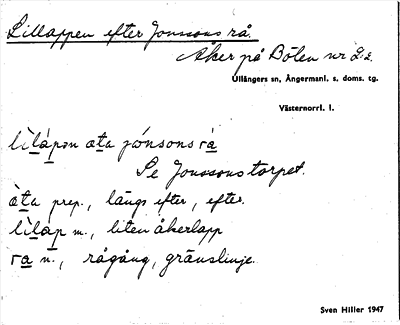 Lillappen efter Jonssons rå.
Åker på Bölen nr 2:2.
Ullångers sn, Ångermanl. s. doms. tg.
Västernorrl. l.
lìlápən àta jónsons rá
Se Jonssons torpet.
àta prep., längs efter, efter.
lìláp m., liten åkerlapp
rá n., rågång, gränslinje.
Sven Hiller 1947